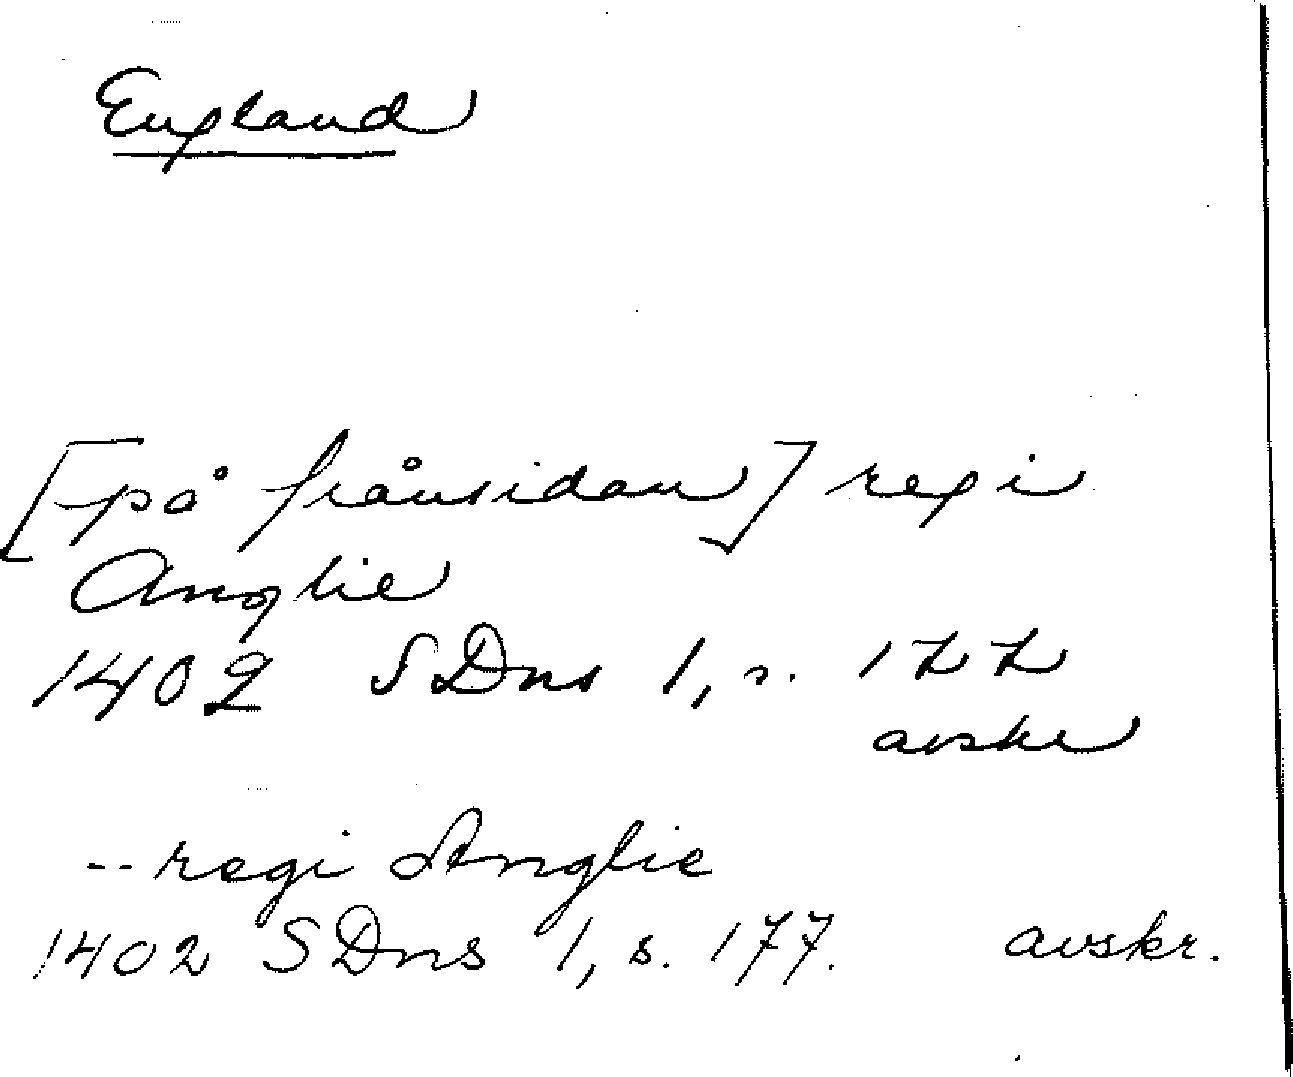 England
[på frånsidan] regi
Anglie
1402 SDns 1, s. 177
avskr
-- regi Anglie
1402 SDns 1, s. 177. avskr.